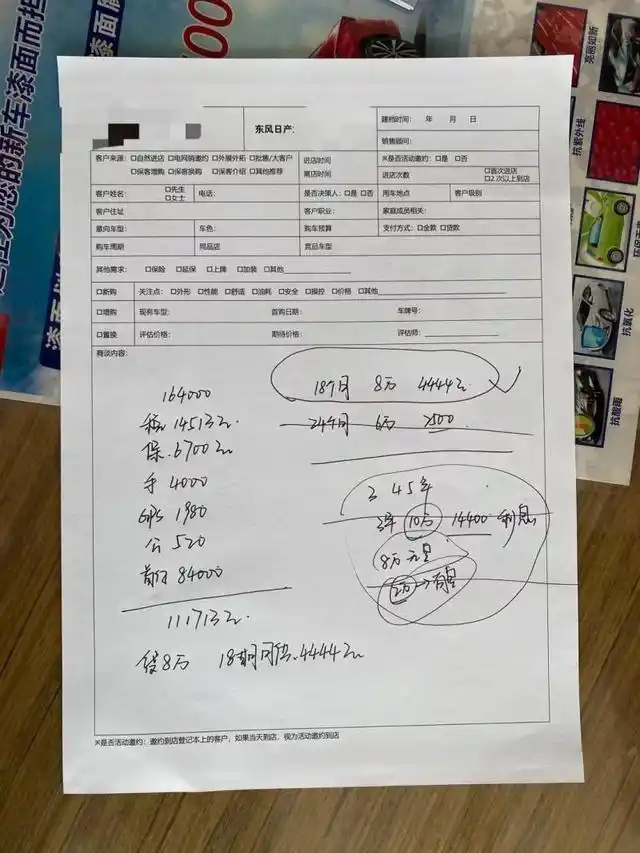 您的新车漆面而担
漆面
00
亮丽如新
抗紫外线
抗氧化
抗酸雨
东风日产:
建档时间: 年 月 日
销售顾问:
客户来源: □自然进店 □电网销邀约 □外展外拓 □批售/大客户
□保客增购 □保客换购 □保客介绍 □其他推荐
进店时间
离店时间
※是否活动邀约: □是 □否
进店次数 □首次进店
□2次以上到店
客户姓名: □先生
□女士
电话:
是否决策人: □是 □否
用车地点
客户级别
客户住址
客户职业:
家庭成员相关:
意向车型:
车色:
购车预算
支付方式: □全款 □贷款
购车周期
同品店
竞品车型
其他需求: □保险 □延保 □上牌 □加装 □其他
□新购 关注点: □外形 □性能 □舒适 □油耗 □安全 □操控 □价格 □其他
□增购 现有车型: 首购日期: 车牌号:
□置换 评估价格: 期待价格: 评估师:
商谈内容:
164000
税 14513元
保.6700元
手 4000
GPS 1980
公 520
首付 84000
111713元
贷8万 18期 月供.4444元
18个月 8万 4444元
24个月 6万 2500
2 4 5年
3年 10万 14400 利息
8万 无息
2万→有息
※是否活动邀约: 邀约到店登记本上的客户, 如果当天到店, 视为活动邀约到店